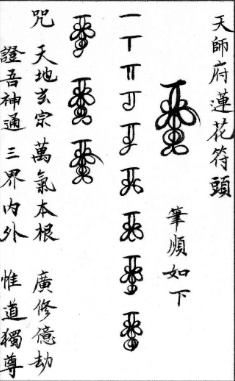 天師府蓮花符頭
筆順如下
咒 天地玄宗 萬氣本根 廣修億劫
證吾神通 三界內外 惟道獨尊